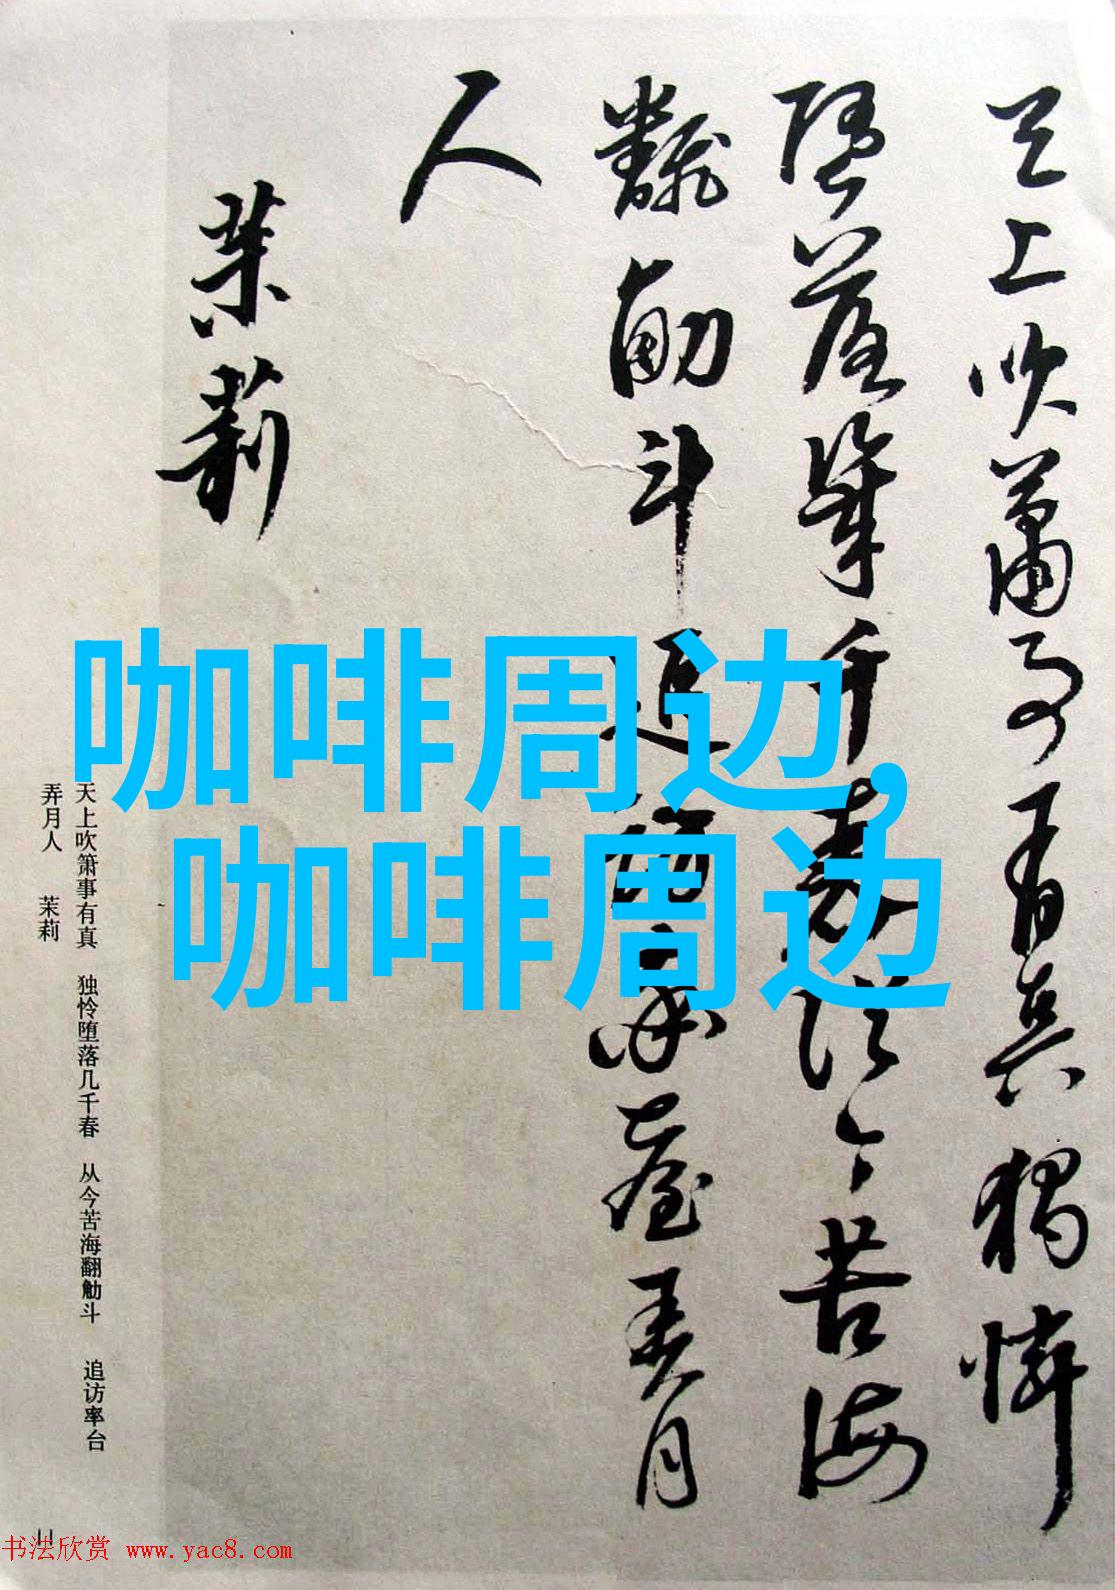 天上吹箫事有真独怜
堕落几千春从今苦海
翻觔斗追访率台弄月
人
茉莉
咖啡周边,
咖啡周边
天上吹箫事有真 独怜堕落几千春 从今苦海翻觔斗 追访率台
弄月人 茉莉
11
书法欣赏 www.yac8.com